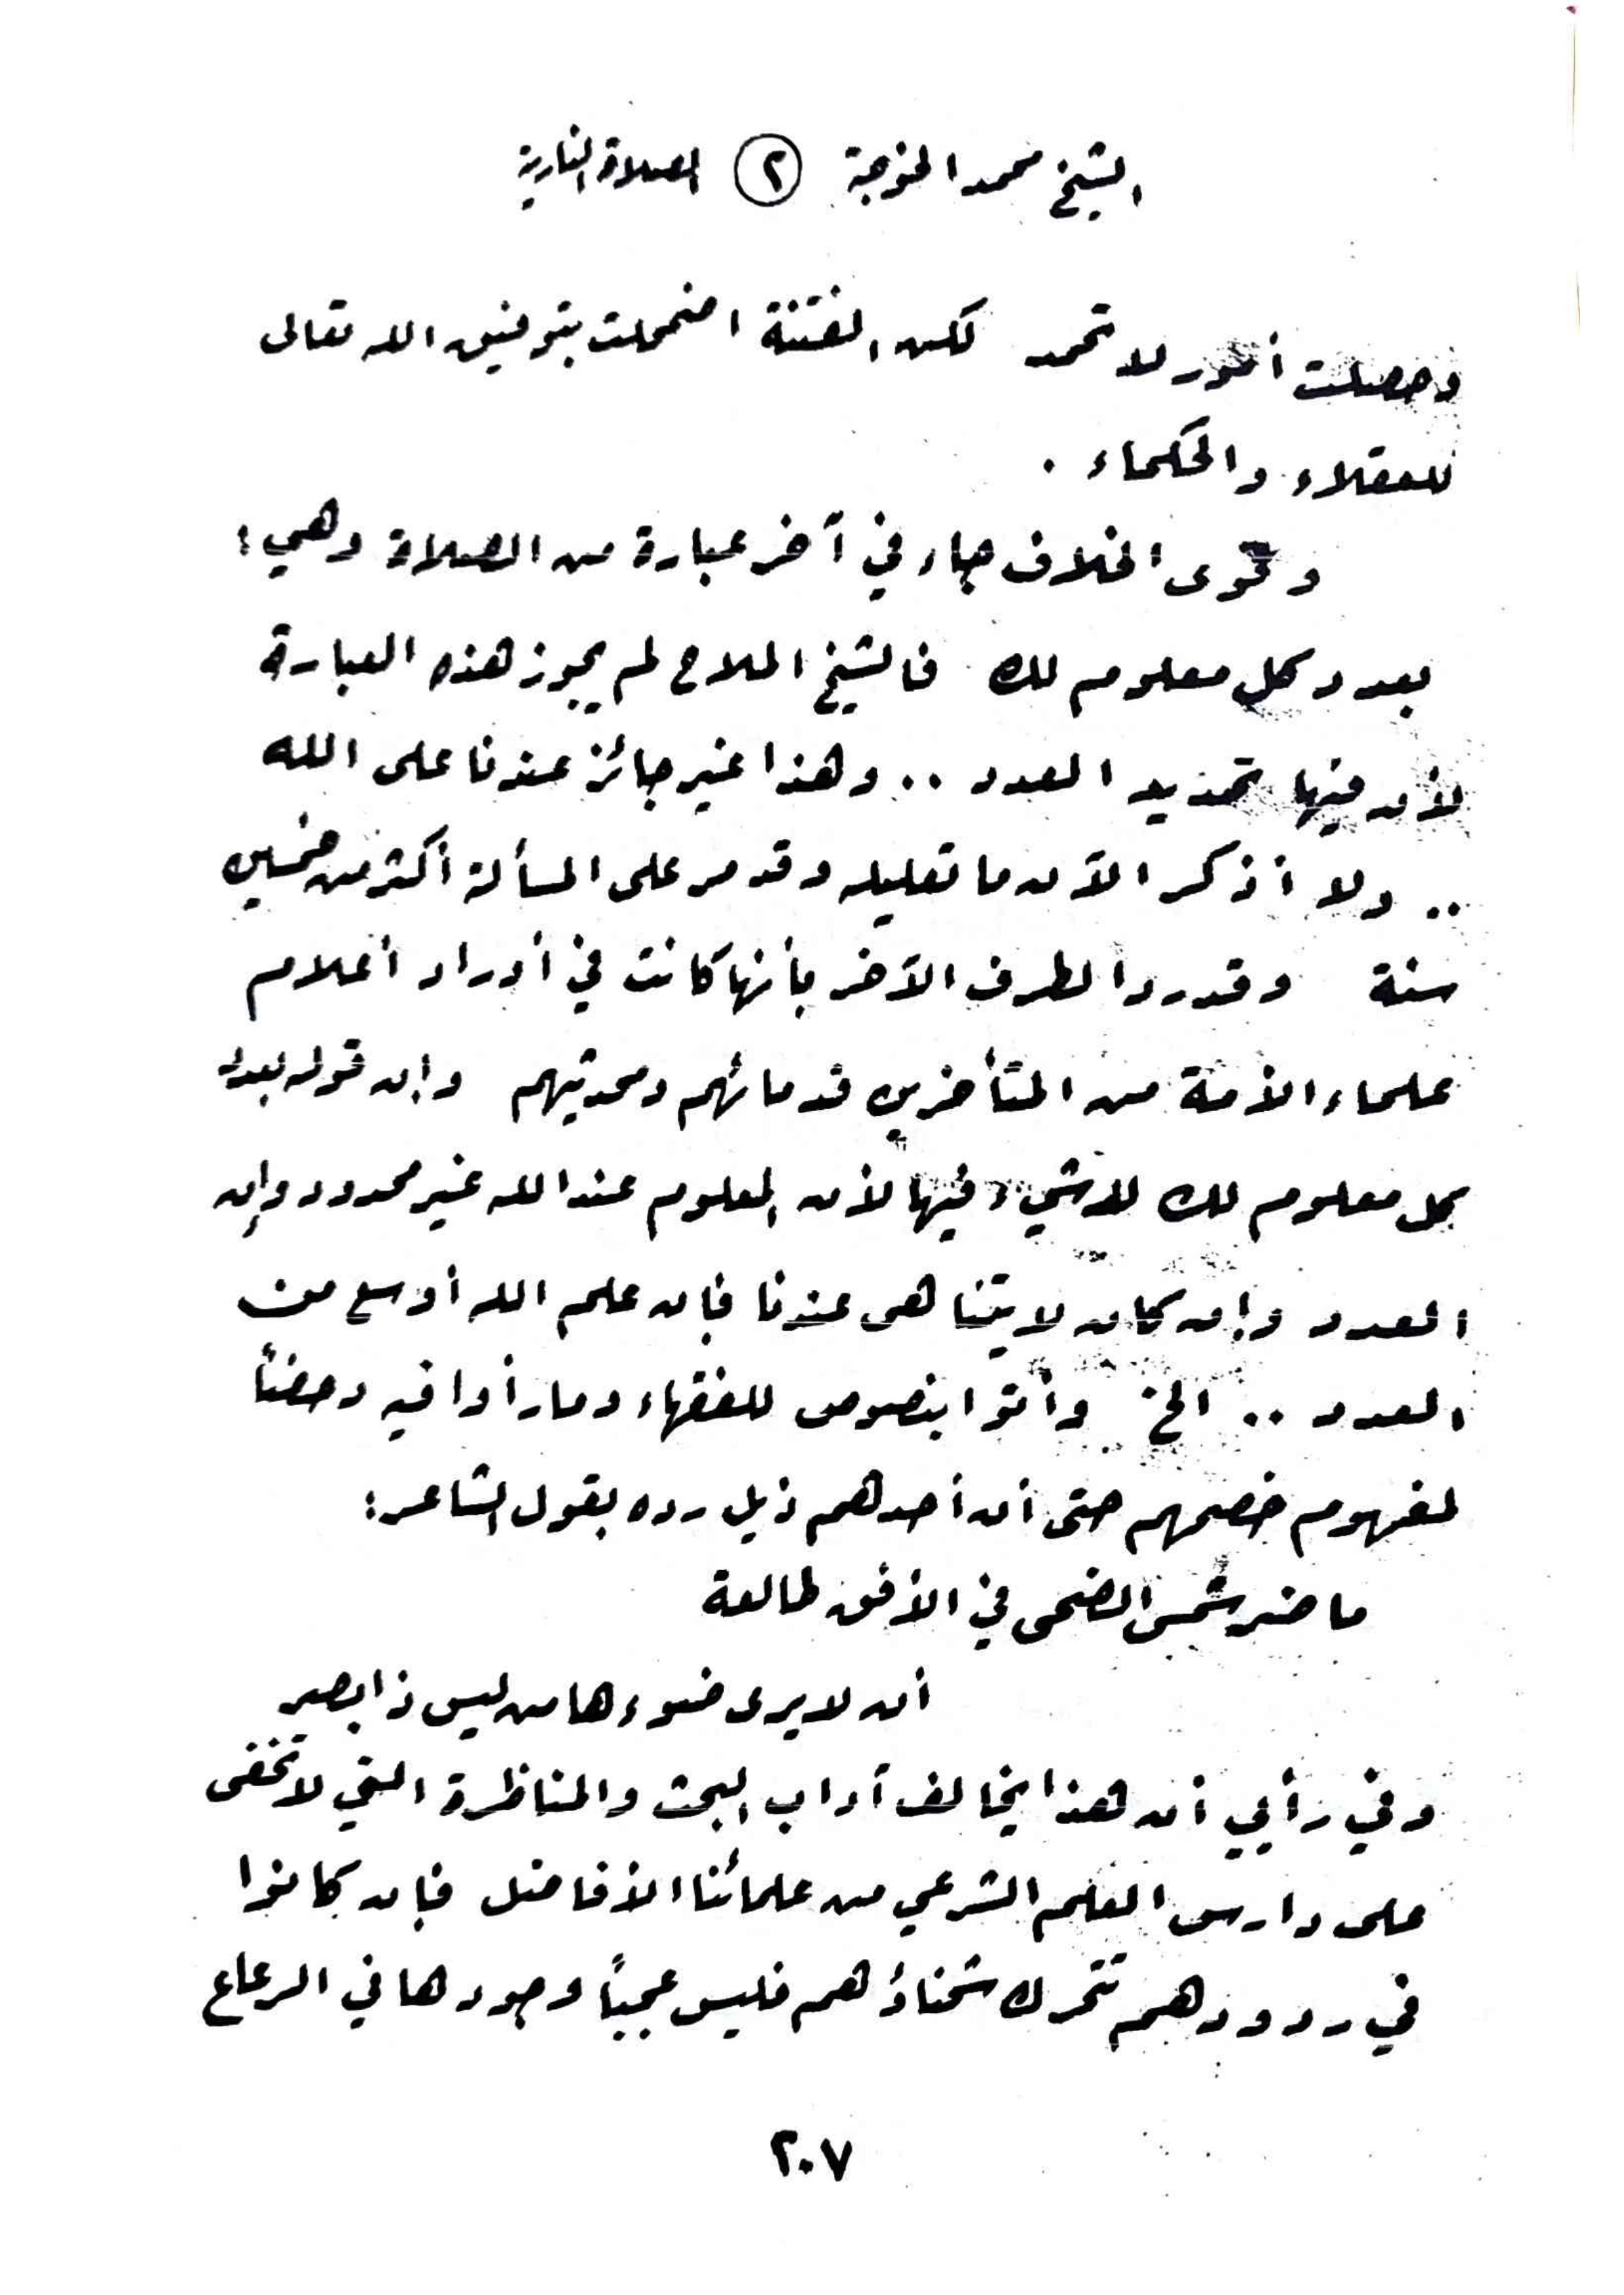 الشيخ محمد الخوجة ٢ الصلاة النارية
وحصلت أمور لا تحمد لكن الفتنة اضمحلت بتوفيق الله تعالى
للعقلاء والحكماء .
وفحوى الخلاف جاء في آخر عبارة من الصلاة وهي :
بعدد كل معلوم لك فالشيخ الملاح لم يجوز هذه العبارة
لأن فيها تحديد العدد .. وهذا غير جائز عندنا على الله
.. ولا أذكر الآن ما تعليله وقد مر على المسألة أكثر من خمسين
سنة وقد رد الطرف الآخر بأنها كانت في أوراد أعلام
علماء الأمة من المتأخرين قدمائهم ومحدثيهم وإن قوله بعدد
كل معلوم لك لا شيء فيها لأن المعلوم عند الله غير محدود وإن
العدد وإن كان لا يتناهى عندنا فإن علم الله أوسع من
العدد .. الخ وأتوا بنصوص للفقهاء وما رأوا فيه دحضاً
لمفهوم خصمهم حتى أن أحدهم ذيل رده بقول الشاعر :
ما ضر شمس الضحى في الأفق طالعة
أن لا يرى ضوءها من ليس ذا بصر
وفي رأيي أن هذا يخالف آداب البحث والمناظرة التي لا تخفى
على دارس العلم الشرعي من علمائنا الأفاضل فإن كانوا
في ردودهم تتحرك شحناؤهم فليس عجيباً وجودها في الرعاع
٢٠٧